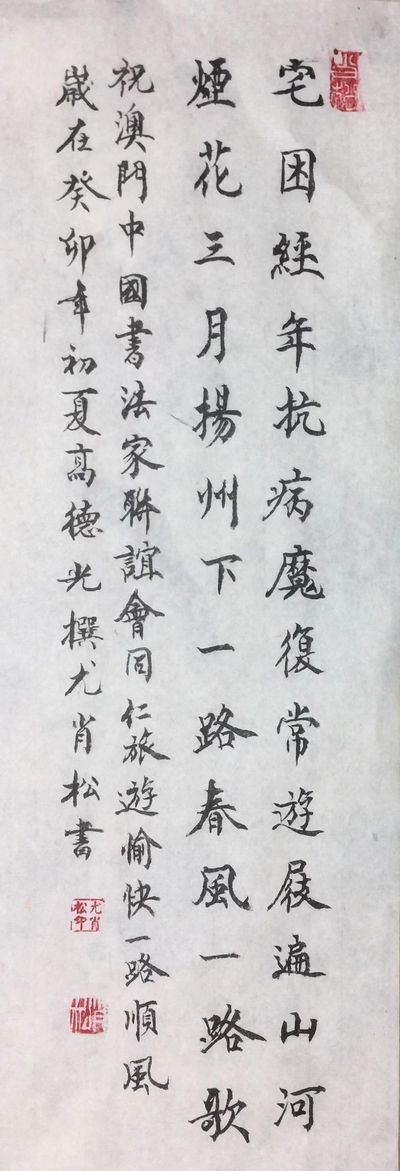 宅困經年抗病魔復常遊屐遍山河
煙花三月揚州下一路春風一路歌
祝澳門中國書法家聯誼會同仁旅遊愉快一路順風
歲在癸卯年初夏高德光撰尤肖松書
尤肖松印